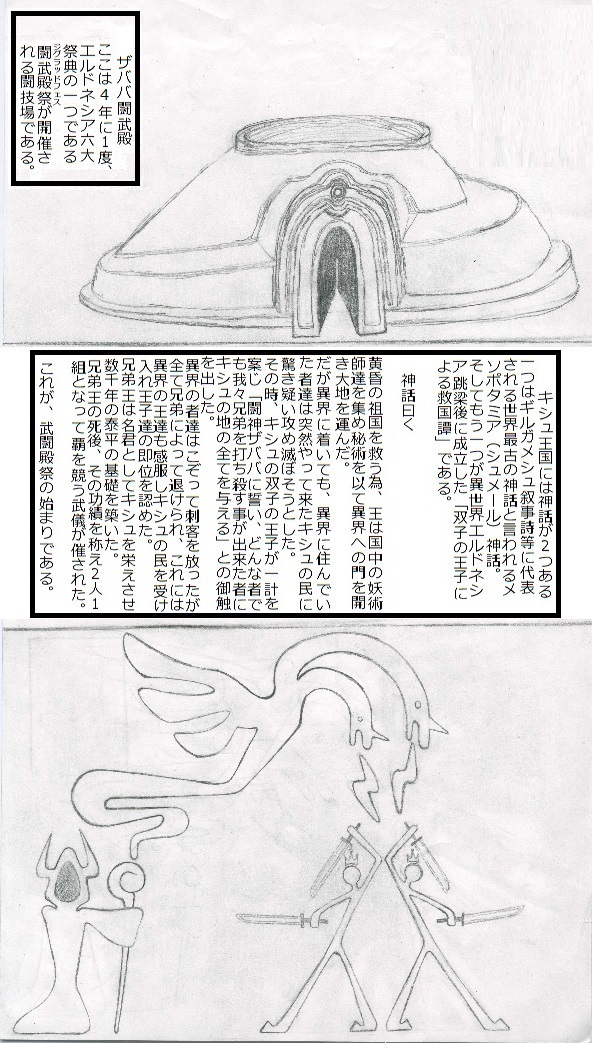 ザババ闘武殿
ここは4年に1度、
エルドネシア六大
祭典の一つである
闘武殿祭が開催さ
ジグラッドフェス
れる闘技場である。
キシュ王国には神話が2つある
一つはギルガメシュ叙事詩等に代表
される世界最古の神話と言われるメ
ソポタミア（シュメール）神話。
そしてもう一つが異世界エルドネシ
ア跳梁後に成立した「双子の王子に
よる救国譚」である。
神話曰く
黄昏の祖国を救う為、王は国中の妖術
師達を集め秘術を以て異界への門を開
き大地を運んだ。
だが異界に着いても、異界に住んでい
た者達は突然やって来たキシュの民に
驚き疑い攻め滅ぼそうとした。
その時、キシュの双子の王子が一計を
案じ「闘神ザババに誓い、どんな者で
も我々兄弟を打ち殺す事が出来た者に
キシュの地の全てを与える」との御触
を出した。
異界の者達はこぞって刺客を放ったが
全て兄弟によって退けられ、これには
異界の王達も感服しキシュの民を受け
入れ王子達の即位を認めた。
兄弟王は名君としてキシュを栄えさせ
数千年の泰平の基礎を築いた。
兄弟王の死後、その功績を称え2人1
組となって覇を競う武儀が催された。
これが、武闘殿祭の始まりである。